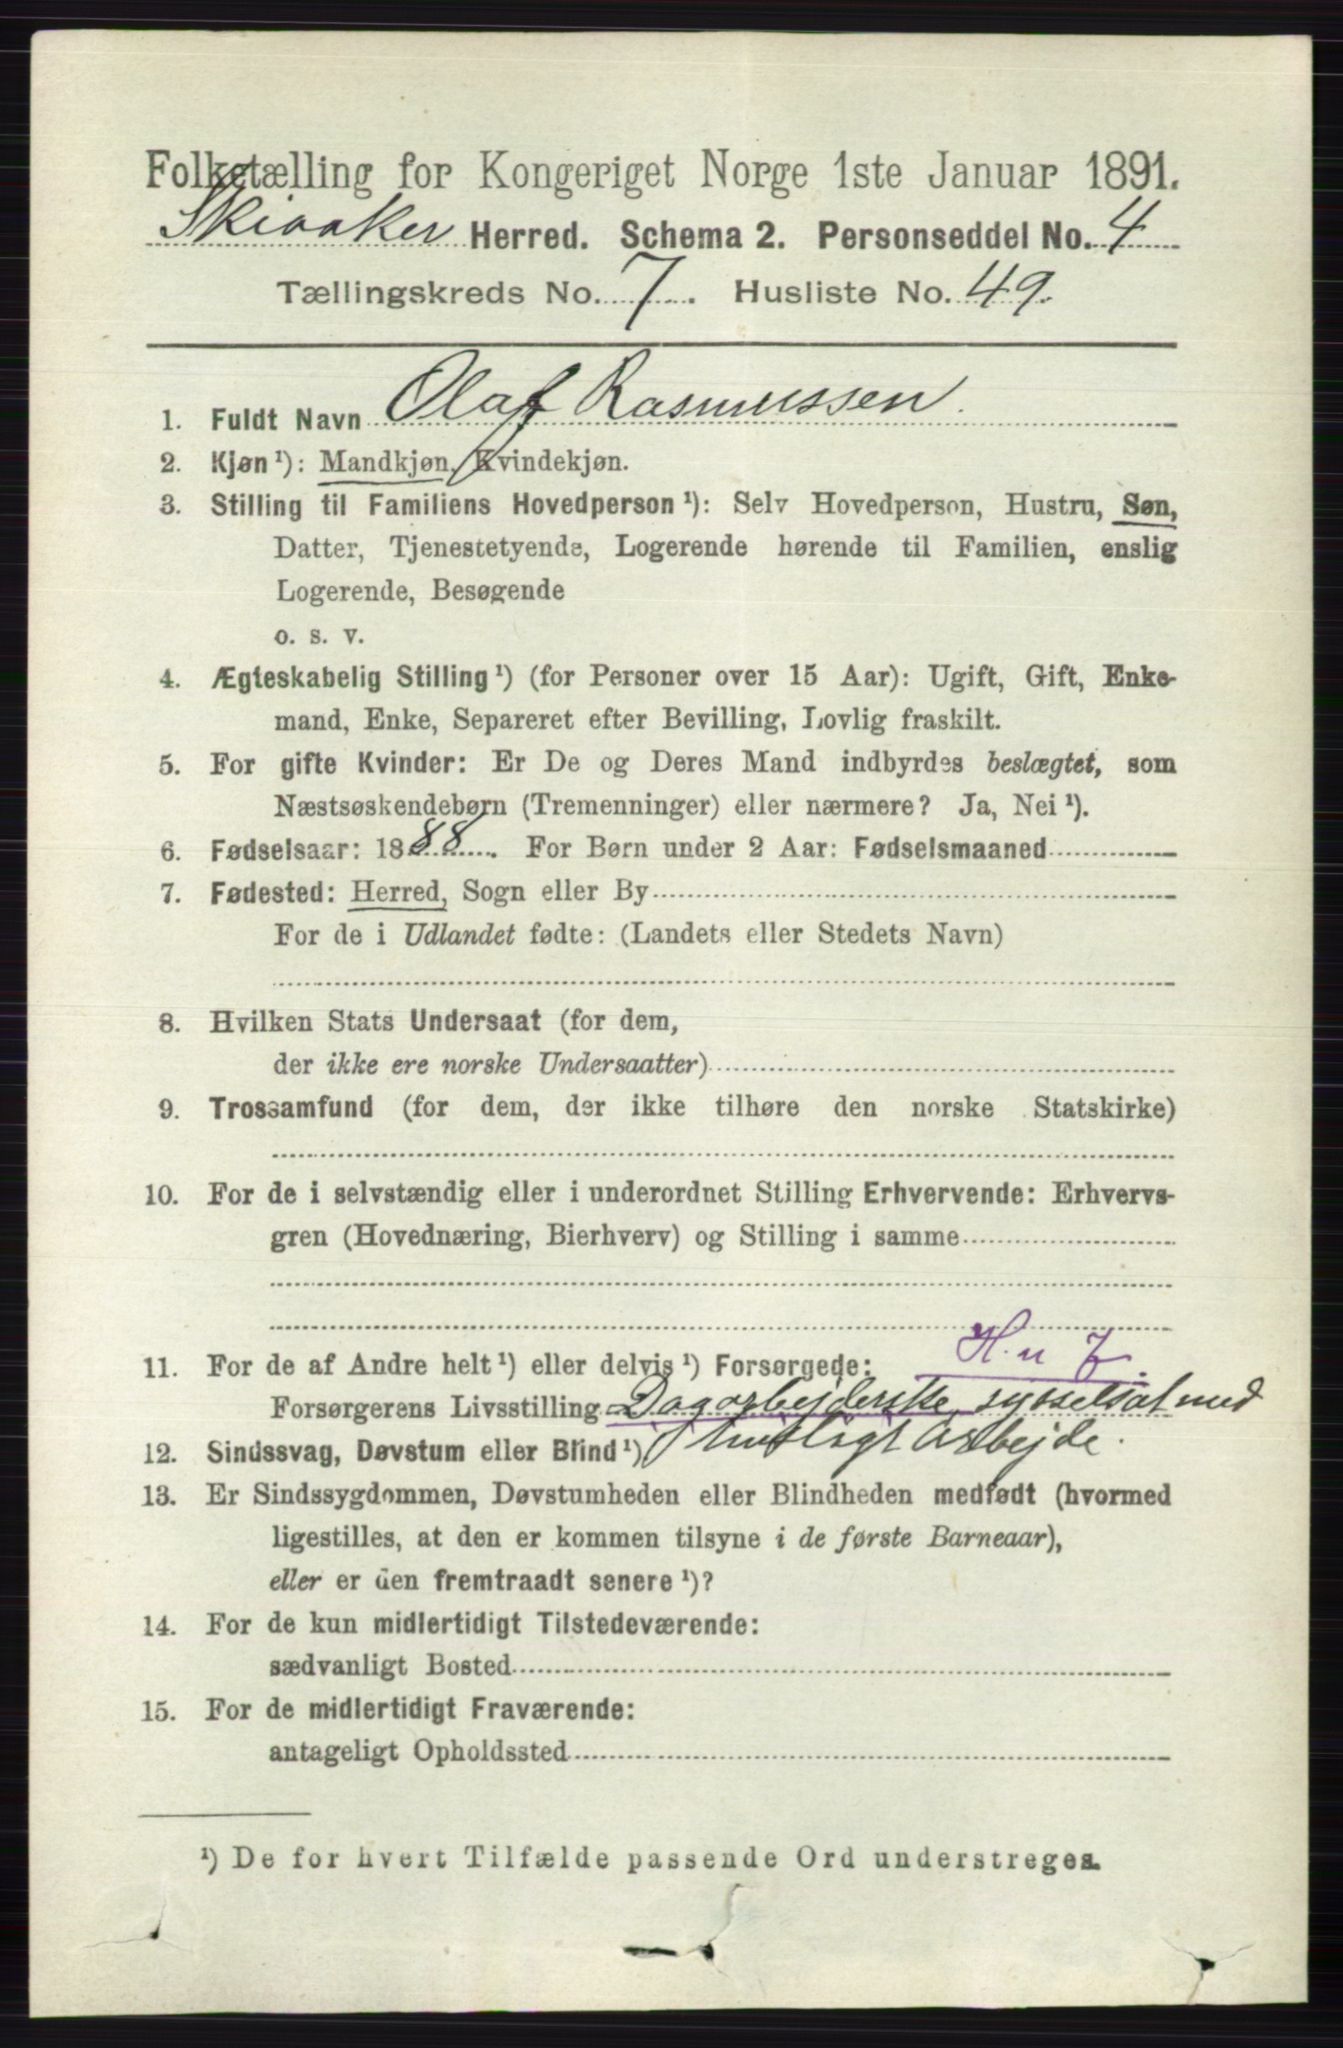 Folketælling for Kongeriget Norge 1ste Januar 1891.
Skiaaker Herred. Schema 2. Personseddel No. 4
Tællingskreds No. 7. Husliste No. 49.
1. Fuldt Navn Olaf Rasmussen.
2. Kjøn ¹): Mandkjøn, Kvindekjøn.
3. Stilling til Familiens Hovedperson ¹): Selv Hovedperson, Hustru, Søn,
Datter, Tjenestetyende, Logerende hørende til Familien, enslig
Logerende, Besøgende
o. s. v.
4. Ægteskabelig Stilling ¹) (for Personer over 15 Aar): Ugift, Gift, Enke-
mand, Enke, Separeret efter Bevilling, Lovlig fraskilt.
5. For gifte Kvinder: Er De og Deres Mand indbyrdes beslægtet, som
Næstsøskendebørn (Tremenninger) eller nærmere? Ja, Nei ¹).
6. Fødselsaar: 1888. For Børn under 2 Aar: Fødselsmaaned
7. Fødested: Herred, Sogn eller By
For de i Udlandet fødte: (Landets eller Stedets Navn)
8. Hvilken Stats Undersaat (for dem,
der ikke ere norske Undersaatter)
9. Trossamfund (for dem, der ikke tilhøre den norske Statskirke)
10. For de i selvstændig eller i underordnet Stilling Erhvervende: Erhvervs-
gren (Hovednæring, Bierhverv) og Stilling i samme
H. u
11. For de af Andre helt ¹) eller delvis ¹) Forsørgede:
Forsørgerens Livsstilling Dagarbejderske, sysselsat med
12. Sindssvag, Døvstum eller Blind ¹) husligt Arbejde.
13. Er Sindssygdommen, Døvstumheden eller Blindheden medfødt (hvormed
ligestilles, at den er kommen tilsyne i de første Barneaar),
eller er den fremtraadt senere ¹)?
14. For de kun midlertidigt Tilstedeværende:
sædvanligt Bosted
15. For de midlertidigt Fraværende:
antageligt Opholdssted
¹) De for hvert Tilfælde passende Ord understreges.